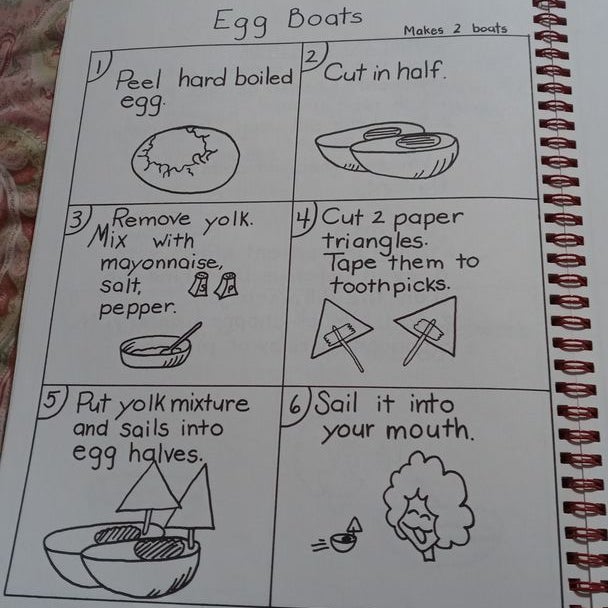 Egg Boats
Makes 2 boats
1) Peel hard boiled
egg.
2) Cut in half.
3) Remove yolk.
Mix with
mayonnaise,
salt,
pepper.
4) Cut 2 paper
triangles.
Tape them to
toothpicks.
5) Put yolk mixture
and sails into
egg halves.
6) Sail it into
your mouth.